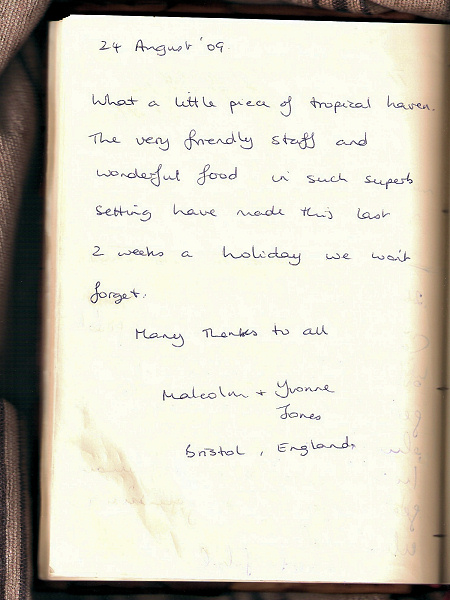 24 August '09.
What a little piece of tropical haven.
The very friendly staff and
wonderful food in such superb
setting have made this last
2 weeks a holiday we won't
forget.
Many Thanks to all
Malcolm + Yvonne
Jones
Bristol, England